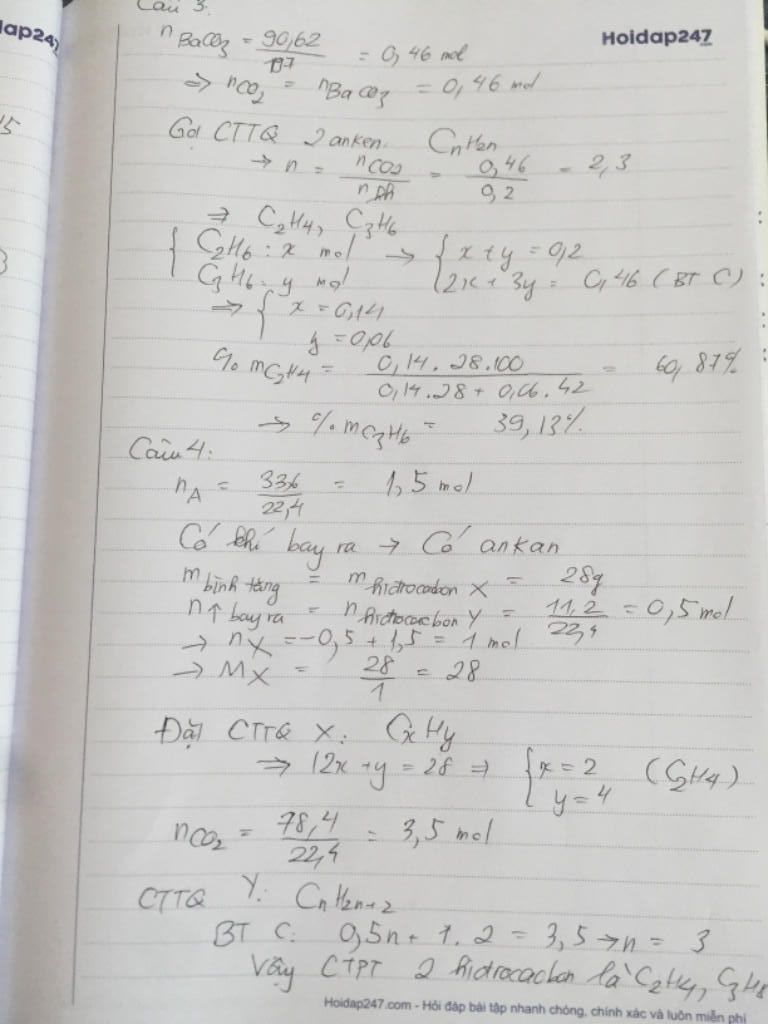 Câu 3.
dap247
Hoidap247
n BaCO3 = 90,62 / 197 = 0,46 mol
=> nCO2 = nBaCO3 = 0,46 mol
15
Gọi CTTQ 2 anken. CnH2n
→ n = nCO2 / n = 0,46 / 0,2 = 2,3
=> C2H4, C3H6
{ C2H6 : x mol → { x + y = 0,2
C3H6 : y mol 2x + 3y = 0,46 (BT C)
=> { x = 0,14
y = 0,06
% mC2H4 = 0,14.28.100 / 0,14.28 + 0,06.42 = 60,87%
→ % mC3H6 = 39,13%
Câu 4:
nA = 33,6 / 22,4 = 1,5 mol
Có khí bay ra → Có ankan
m bình tăng = m hidrocacbon X = 28g
n↑ bay ra = n hidrocacbon Y = 11,2 / 22,4 = 0,5 mol
→ nX = -0,5 + 1,5 = 1 mol
→ MX = 28 / 1 = 28
Đặt CTTQ X: CxHy
=> 12x + y = 28 => { x = 2 (C2H4)
y = 4
nCO2 = 78,4 / 22,4 = 3,5 mol
CTTQ Y: CnH2n+2
BT C: 0,5n + 1.2 = 3,5 → n = 3
Vậy CTPT 2 hidrocacbon là C2H4, C3H8
Hoidap247.com - Hỏi đáp bài tập nhanh chóng, chính xác và luôn miễn phí